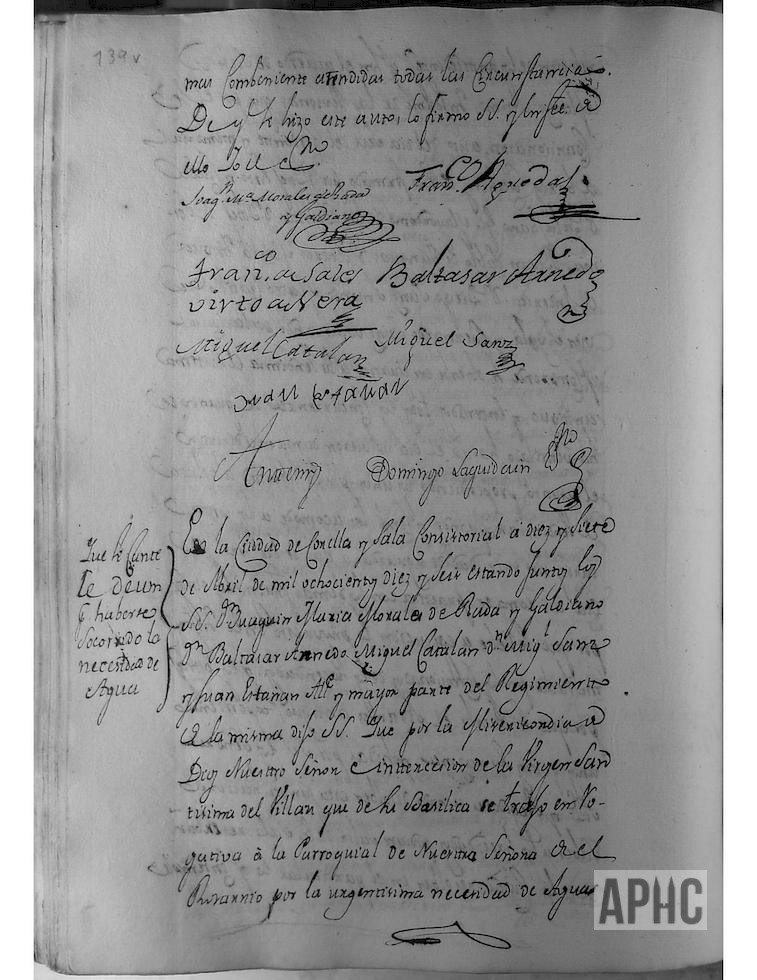 139v
mas combeniente atendidas todas las Circunstancias.
De q.e se hizo este auto, lo firmo S.S. y en fee de
ello Yo el es.no
Joaq.n M.a Morales de Rada
y Galdiano
Fran.co Agueda
Fran.co de Sales
virto de Vera
Baltasar Arnedo
Miguel Catalan
Miguel Sanz
Juan Estañan
Antemi
Domingo Laquidain
Que se Cante
Te deum
p.r haberse
Socorrido la
necesidad de
Agua
En la Ciudad de Corella y Sala Consistorial a diez y Siete
de Abril de mil ochocientos diez y Seis estando Juntos los
S.S. D.n Juaquin Maria Morales de Rada y Galdiano
D.n Baltasar Arnedo Miguel Catalan D.n Mig.l Sanz
y Juan Estañan Al.e y mayor parte del Regimiento
de la misma dijo S.S. Que por la Misericordia de
Dios Nuestro Señor é intercesion de la Virgen San
tisima del Villar que de su Basilica se trajo en Ro-
gativa à la Parroquial de Nuestra Señora de el
Rosario por la urgentisima necesidad de Agua
APHC